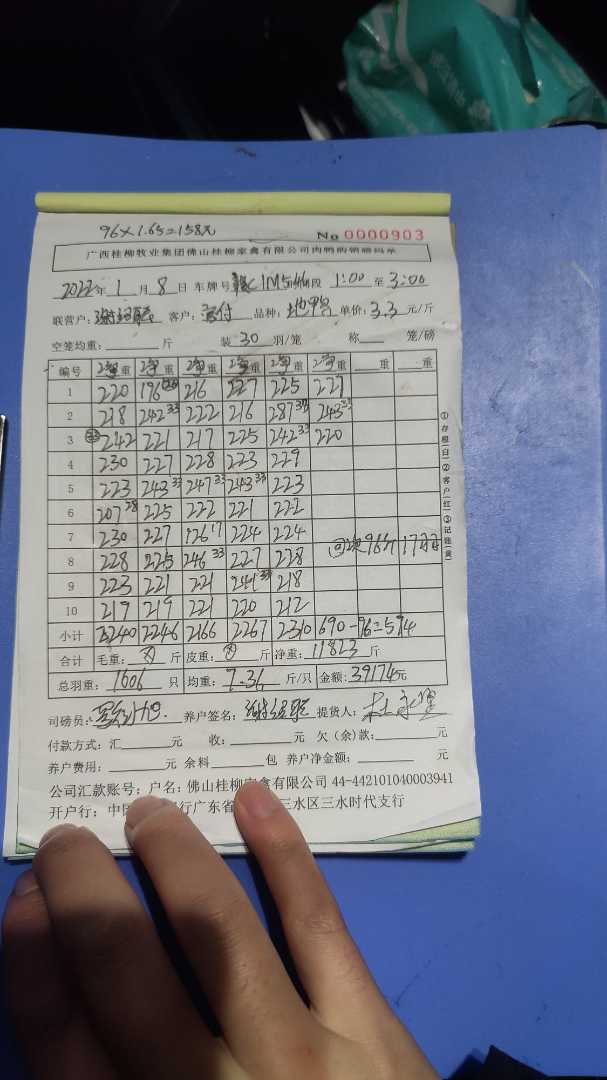 96×1.65=158元
No 0000903
广西桂柳牧业集团佛山桂柳家禽有限公司肉鸭购销磅码单
2022年 1 月 8 日 车牌号 段 1:00 至 3:00
联营户: 客户: 品种: 单价: 3.3 元/斤
空笼均重: 斤 装 30 羽/笼 称 笼/磅
编号 重 重 重 重 重 重 重 重
1 220 196 216 227 225 227
2 218 242 33 222 216 287 243
3 242 221 217 225 242 33 220
4 230 227 228 223 229
5 223 243 33 247 33 243 33 223
6 207 28 225 222 221 222
7 230 227 126 17 224 224
8 228 225 246 33 227 228
9 223 221 221 241 33 218
10 219 219 221 220 212
96斤 17
小计 2240 2246 2166 2267 2310 690-96=594
合计 毛重: 斤 皮重: 斤 净重: 11823 斤
总羽重: 1606 只 均重: 7.36 斤/只 金额: 39174元
司磅员: 养户签名: 提货人:
付款方式: 汇 元 收: 元 欠(余)款: 元
养户费用: 元 余料 包 养户净金额: 元
公司汇款账号: 户名: 佛山桂柳家禽有限公司 44-442101040003941
开户行: 中 行广东省 三水区三水时代支行
①存根(白)②客户(红)③记账(黄)